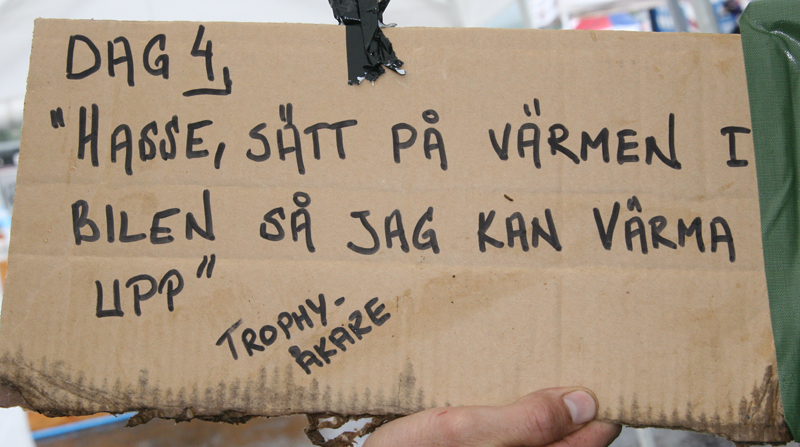 DAG 4,
"HASSE, SÄTT PÅ VÄRMEN I
BILEN SÅ JAG KAN VÄRMA
UPP"
TROPHY-
ÅKARE